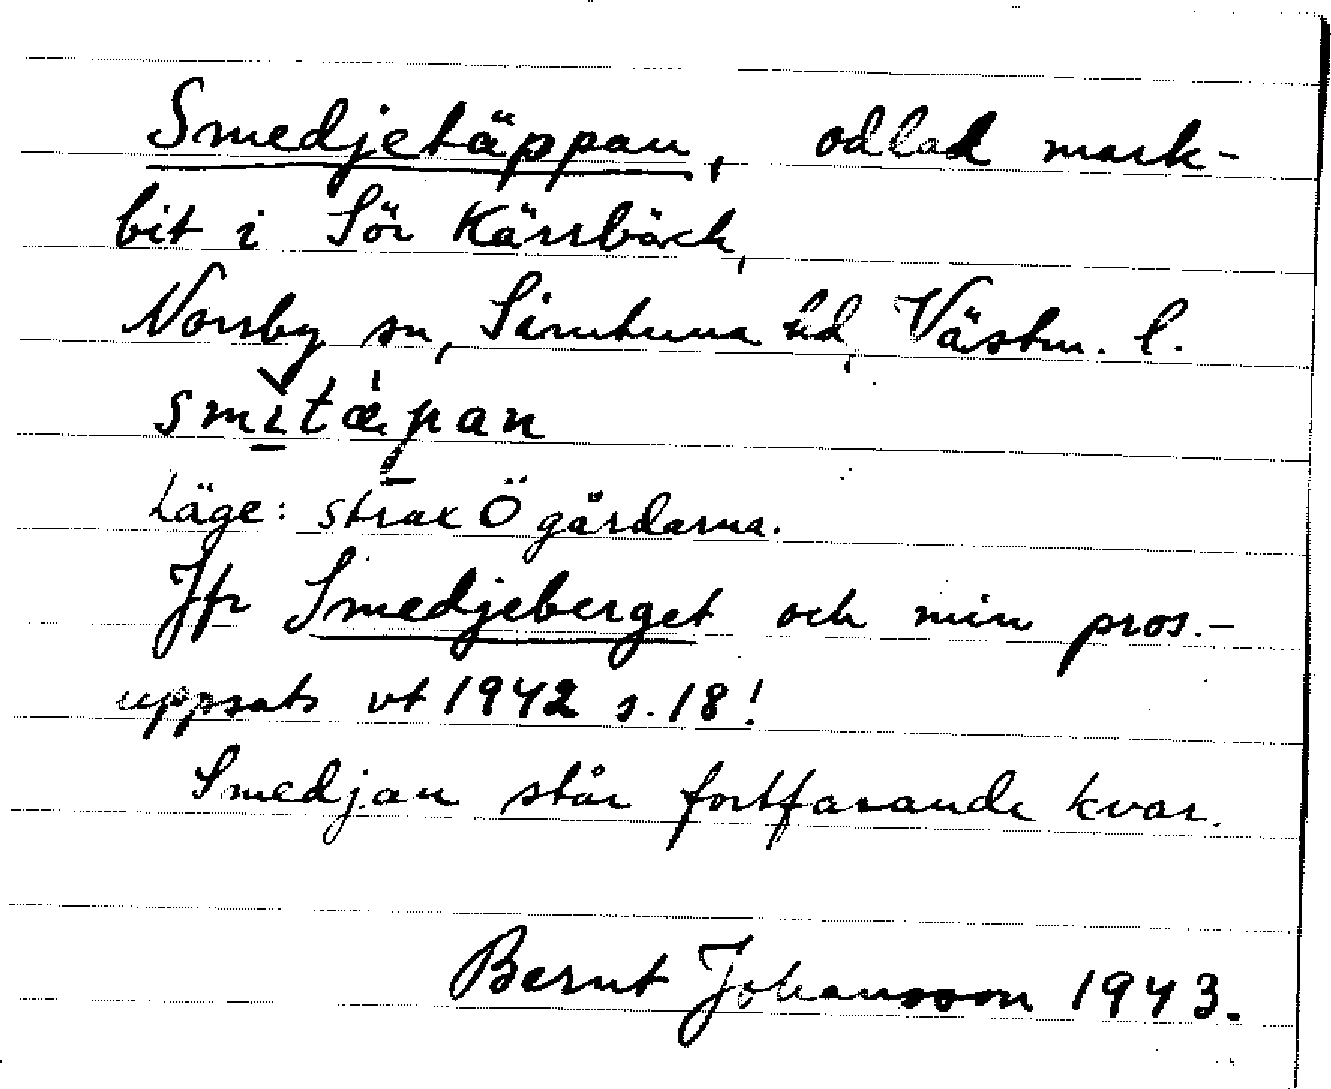 Smedjetäppan, odlad mark-
bit i Sör Kärrbäck,
Norrby sn, Simtuna hd, Västm. l.
smi̱tæp̱an
Läge: strax Ö gårdarna.
Jfr Smedjeberget och min pros.-
uppsats vt 1942 s. 18!
Smedjan står fortfarande kvar.
Bernt Johansson 1943.